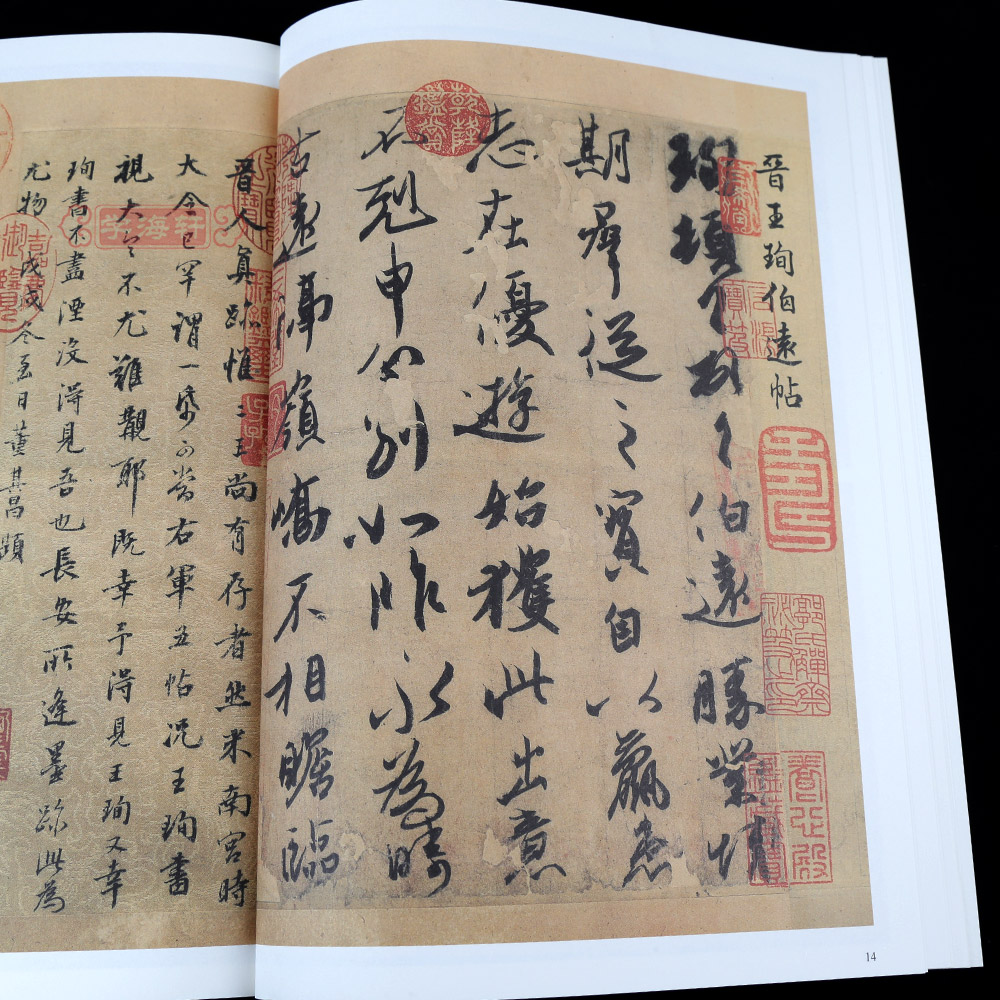 晉王珣伯遠帖
珣頓首頓首伯遠勝業情
期羣從之寶自以羸患
志在優遊始獲此出意
不剋申分別如昨永為疇
古遠隔嶺嶠不相瞻臨
乾隆鑑賞
郭氏觶齋秘笈之印
養心殿鑑藏寶
14
晉人真跡惟二王尚有存者然米南宮時
大令已罕謂一帋可當右軍五帖況王珣書
視大令不尤難覯耶既幸予得見王珣又幸
珣書不盡湮沒得見吾也長安所逢墨跡此為
尤物戊戌冬至日董其昌題
学海轩
嘉慶御覽